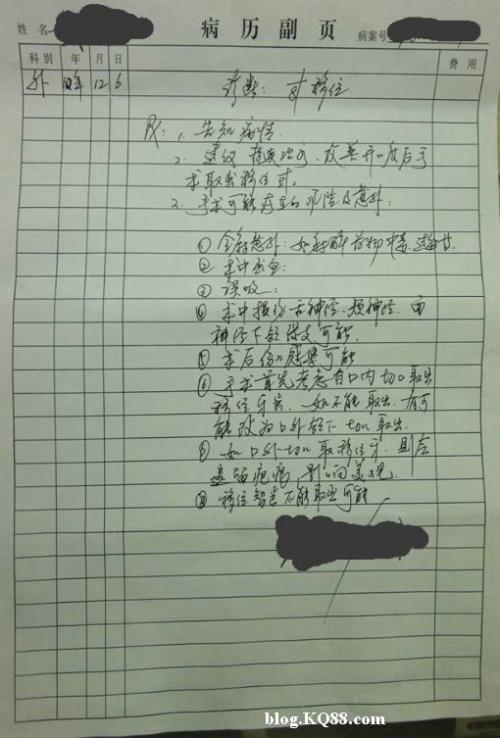 姓名 病历副页 病案号
科别 年 月 日 费用
外 12 6 诊断: 移位
Rx: 1. 告知病情.
2. 建议 抗炎治疗. 改善开口度后手
术取出移位
3. 手术可能存在的风险及意外:
① 全身意外: 如 麻醉药物中毒. 过敏等
② 术中出血:
③ 误吸:
④ 术中损伤舌神经. 颊神经. 面
神经下颌缘支可能.
⑤ 术后伤口感染可能
⑥ 手术首先考虑自口内切口取出
移位牙齿. 如不能取出. 有可
能改为口外颌下切口取出.
⑦ 如口外切口取移位牙. 则会
遗留疤痕, 影响美观.
⑧ 移位智齿不能取出可能
blog.KQ88.com